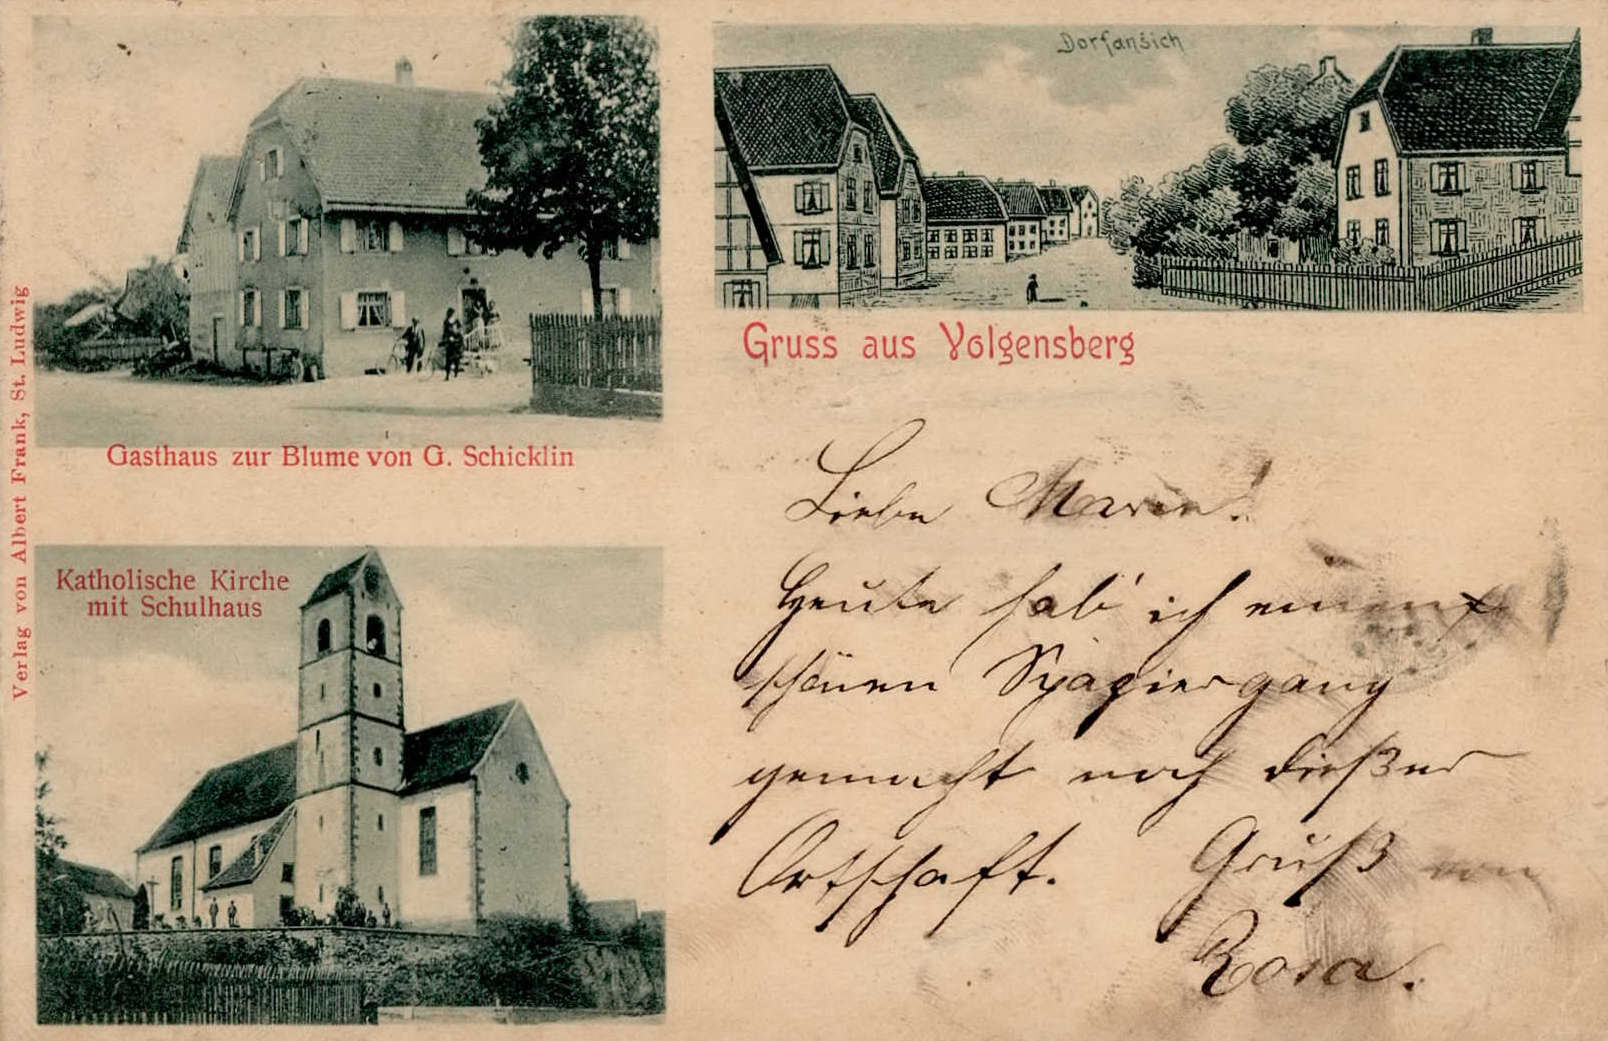 Dorfansich
Gruss aus Volgensberg
Gasthaus zur Blume von G. Schicklin
Katholische Kirche
mit Schulhaus
Verlag von Albert Frank, St. Ludwig
Liebe Marie!
Heute hab' ich einen
schönen Spaziergang
gemacht nach dießer
Ortschaft. Gruß von
Rosa.